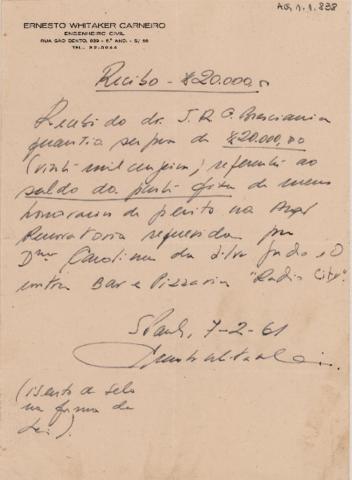 AG.1.1.838
ERNESTO WHITAKER CARNEIRO
ENGENHEIRO CIVIL
RUA SÃO BENTO, - 6.º AND. - S/
TEL.
Recibo - $20.000,00
Recebi do dr. J. R. O. Bresciani a
quantia supra de $20.000,00
(vinte mil cruzeiros) referente ao
saldo da parte fixa de meus
honorarios de perito na
Renovatoria requerida por
Dna Carolina da Silva e O
contra Bar e Pizzaria "Radio City".
S Paulo, 7-2-61
(isento de selo
na forma da
Lei).